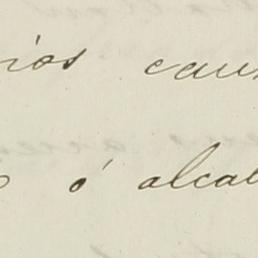 rios cau
ó alcal